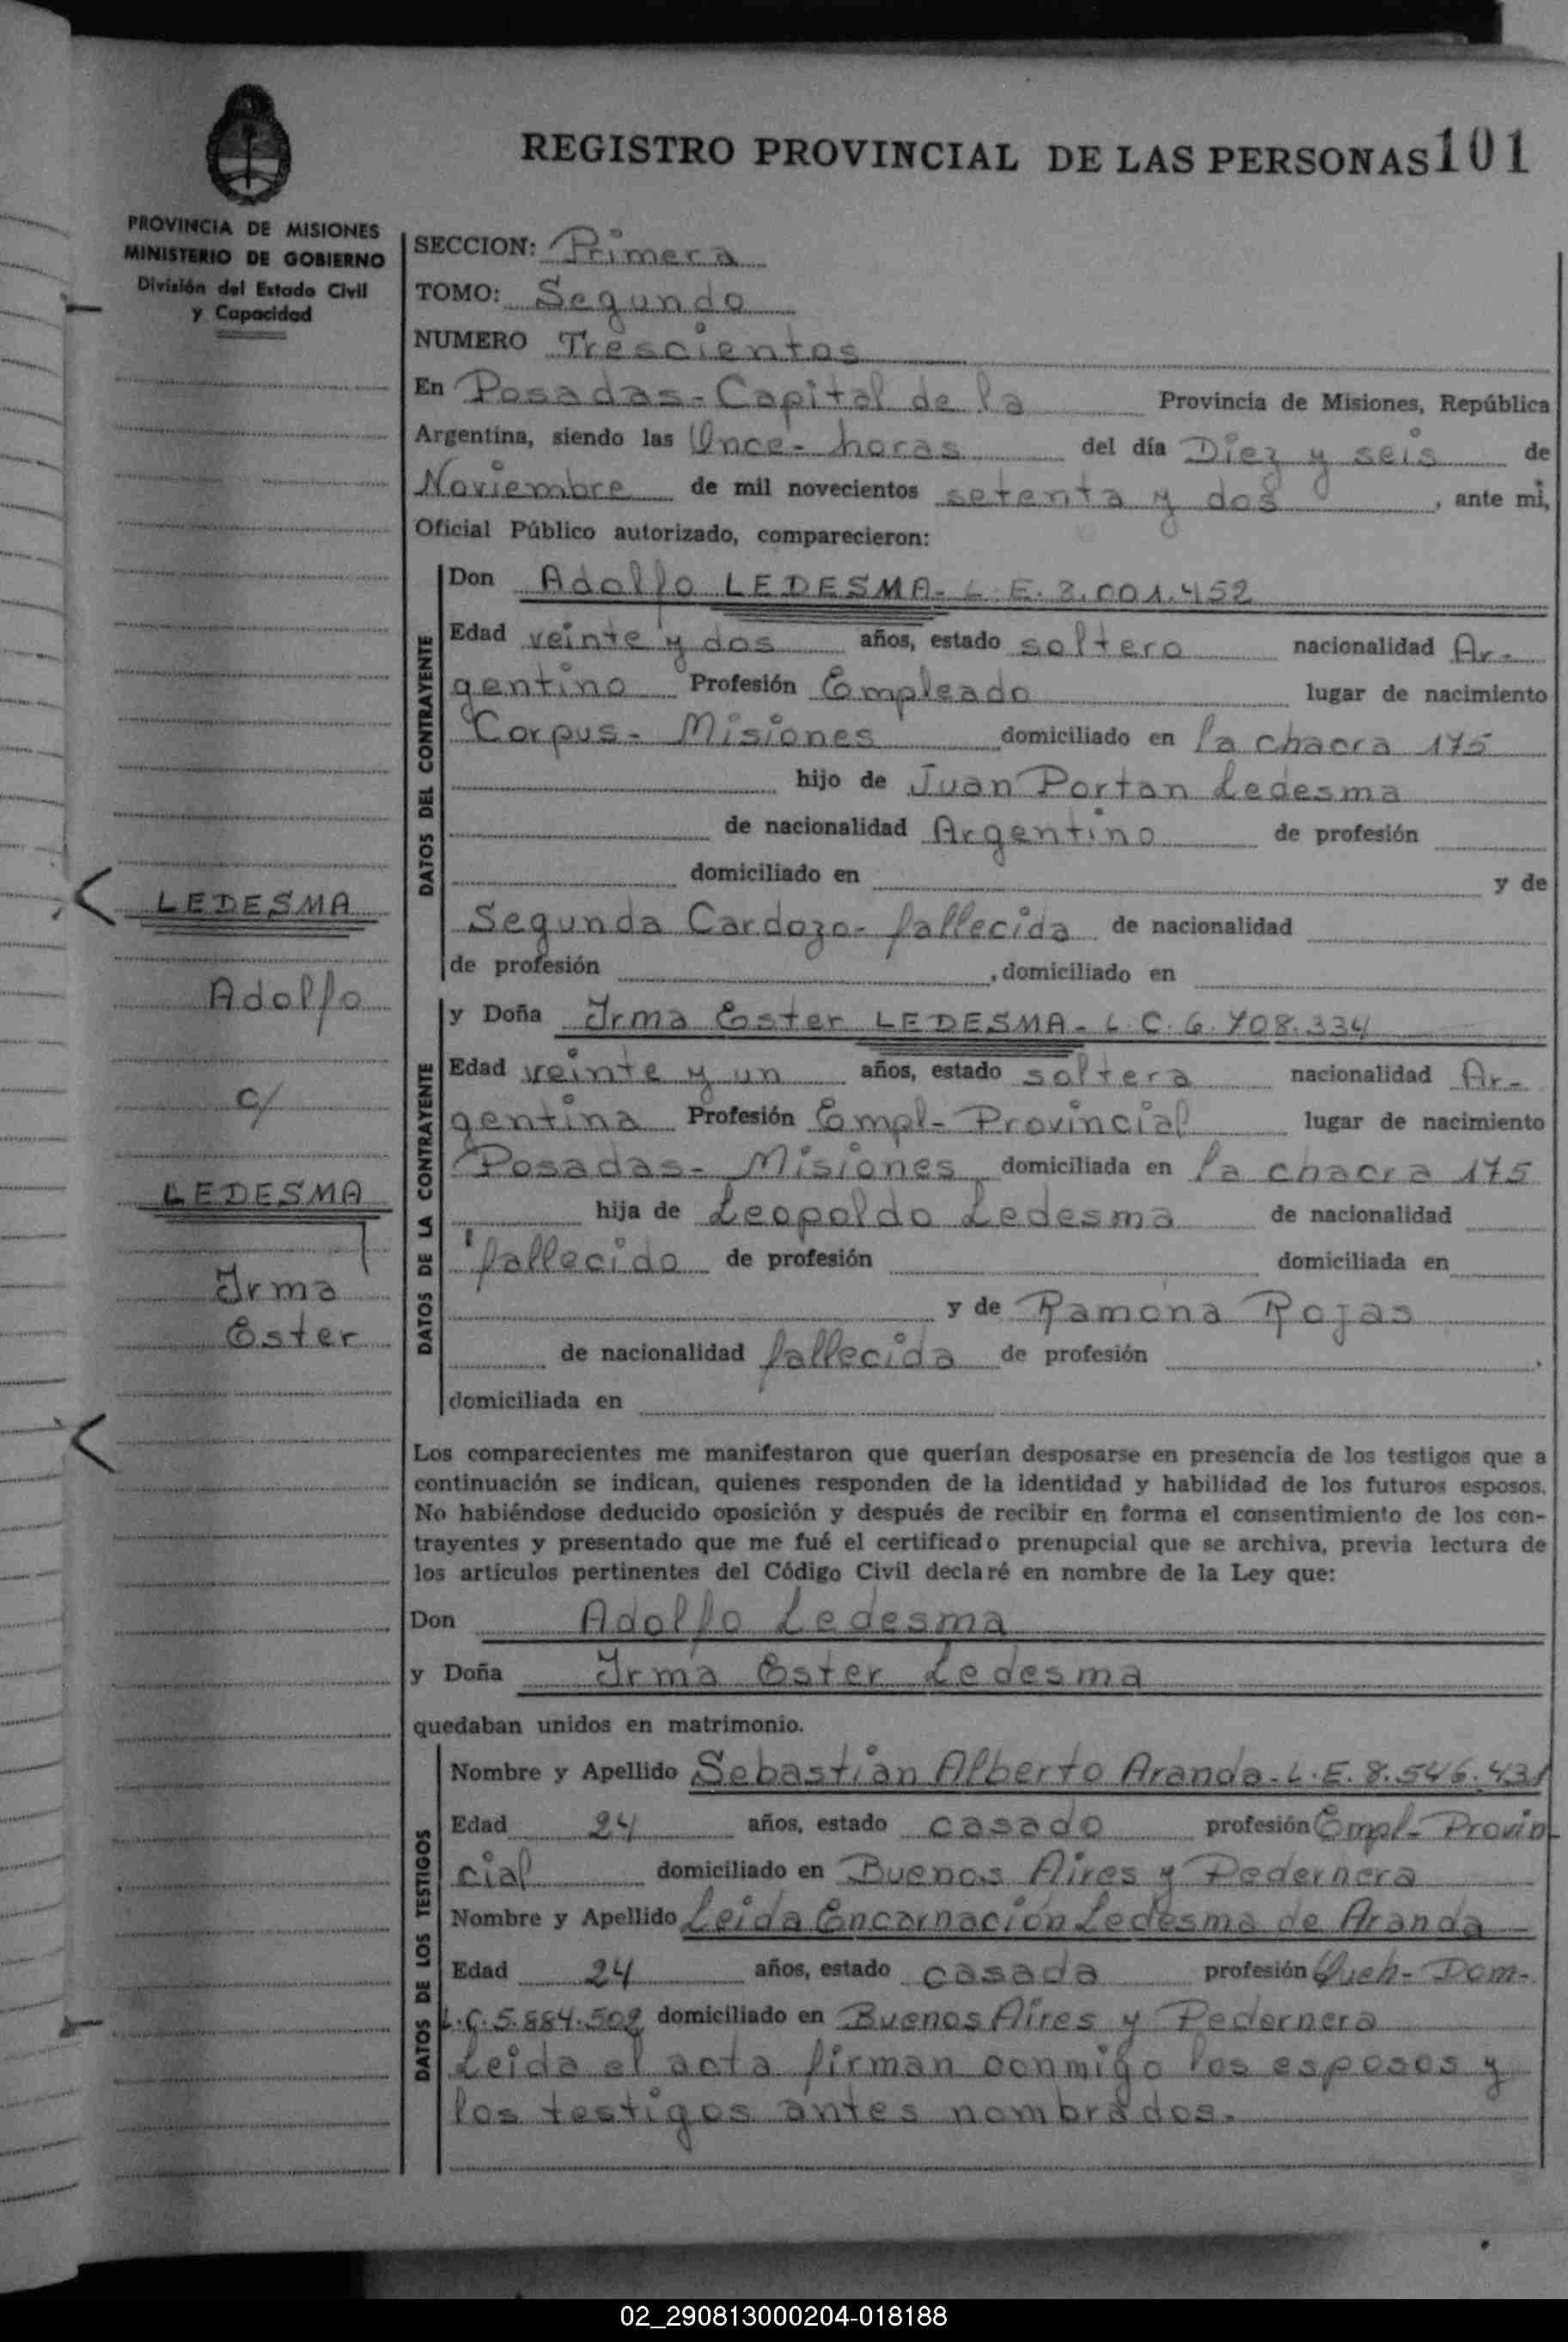 REGISTRO PROVINCIAL DE LAS PERSONAS 101
PROVINCIA DE MISIONES
MINISTERIO DE GOBIERNO
División del Estado Civil
y Capacidad
LEDESMA
Adolfo
c/
LEDESMA
Irma
Ester
SECCION: Primera
TOMO: Segundo
NUMERO Trescientos
En Posadas- Capital de la Provincia de Misiones, República
Argentina, siendo las Once- horas del día Diez y seis de
Noviembre de mil novecientos setenta y dos, ante mi,
Oficial Público autorizado, comparecieron:
DATOS DEL CONTRAYENTE
Don Adolfo LEDESMA- L.E. 8.001.452
Edad veinte y dos años, estado soltero nacionalidad Ar-
gentino Profesión Empleado lugar de nacimiento
Corpus- Misiones domiciliado en la chacra 175
hijo de Juan Portan Ledesma
de nacionalidad Argentino de profesión
domiciliado en y de
Segunda Cardozo- fallecida de nacionalidad
de profesión , domiciliado en
DATOS DE LA CONTRAYENTE
y Doña Irma Ester LEDESMA- L.C. 6.708.334
Edad veinte y un años, estado soltera nacionalidad Ar-
gentina Profesión Empl- Provincial lugar de nacimiento
Posadas- Misiones domiciliada en la chacra 175
hija de Leopoldo Ledesma de nacionalidad
fallecido de profesión domiciliada en
y de Ramona Rojas
de nacionalidad fallecida de profesión .
domiciliada en
Los comparecientes me manifestaron que querían desposarse en presencia de los testigos que a
continuación se indican, quienes responden de la identidad y habilidad de los futuros esposos.
No habiéndose deducido oposición y después de recibir en forma el consentimiento de los con-
trayentes y presentado que me fué el certificado prenupcial que se archiva, previa lectura de
los artículos pertinentes del Código Civil declaré en nombre de la Ley que:
Don Adolfo Ledesma
y Doña Irma Ester Ledesma
quedaban unidos en matrimonio.
DATOS DE LOS TESTIGOS
Nombre y Apellido Sebastián Alberto Aranda- L.E. 8.546.431
Edad 24 años, estado casado profesión Empl- Provin
cial domiciliado en Buenos Aires y Pedernera
Nombre y Apellido Leida Encarnación Ledesma de Aranda
Edad 24 años, estado casada profesión Queh- Dom-
L.C. 5.884.502 domiciliado en Buenos Aires y Pedernera
Leida el acta firman conmigo los esposos y
los testigos antes nombrados.
02_290813000204-018188